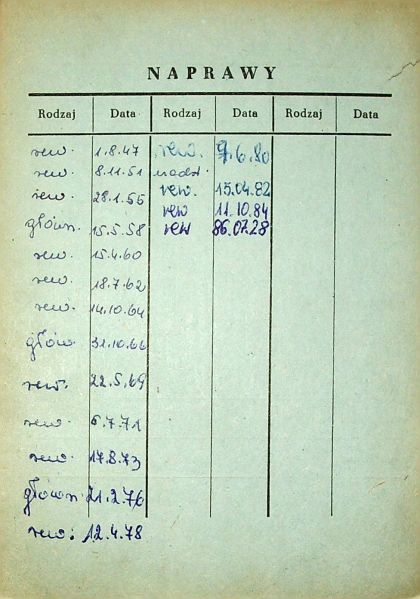 NAPRAWY
Rodzaj Data Rodzaj Data Rodzaj Data
rew. 1.8.47 rew. 9.6.80
rew. 8.11.51 nadzw.
rew. 28.1.55 rew. 15.04.82
rew 11.10.84
główn. 15.5.58 rew 86.07.28
rew. 15.4.60
rew. 18.7.62
rew. 14.10.64
głów. 31.10.66
rew. 22.5.69
rew. 6.7.71
rew. 17.8.73
główn. 21.2.76
rew. 12.4.78